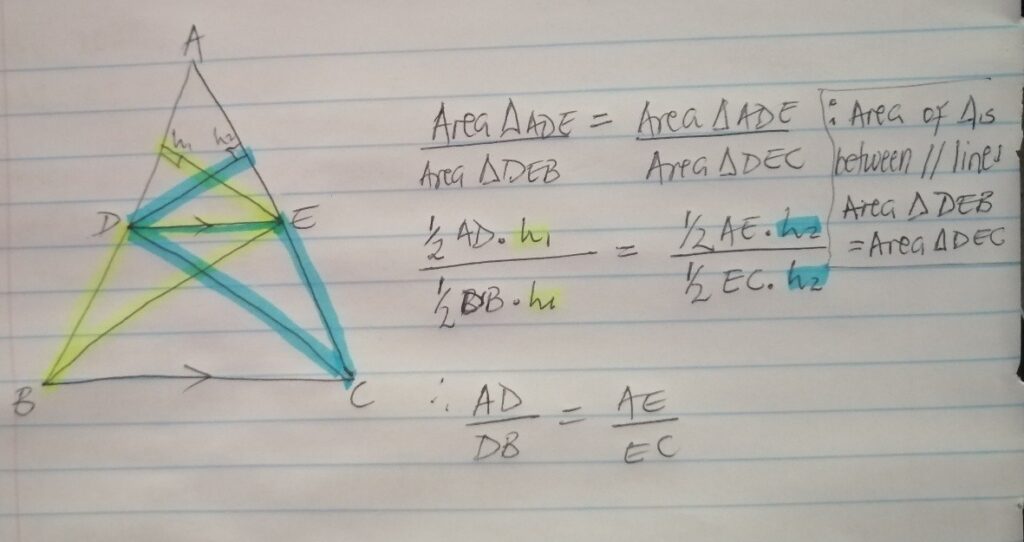 A
h₁ h₂
D E
B C
Area ΔADE = Area ΔADE
Area ΔDEB Area ΔDEC
∴ Area of Δs
between // lines
Area Δ DEB
= Area ΔDEC
½ AD. h₁ = ½ AE. h₂
½ DB. h₁ ½ EC. h₂
∴ AD = AE
DB EC